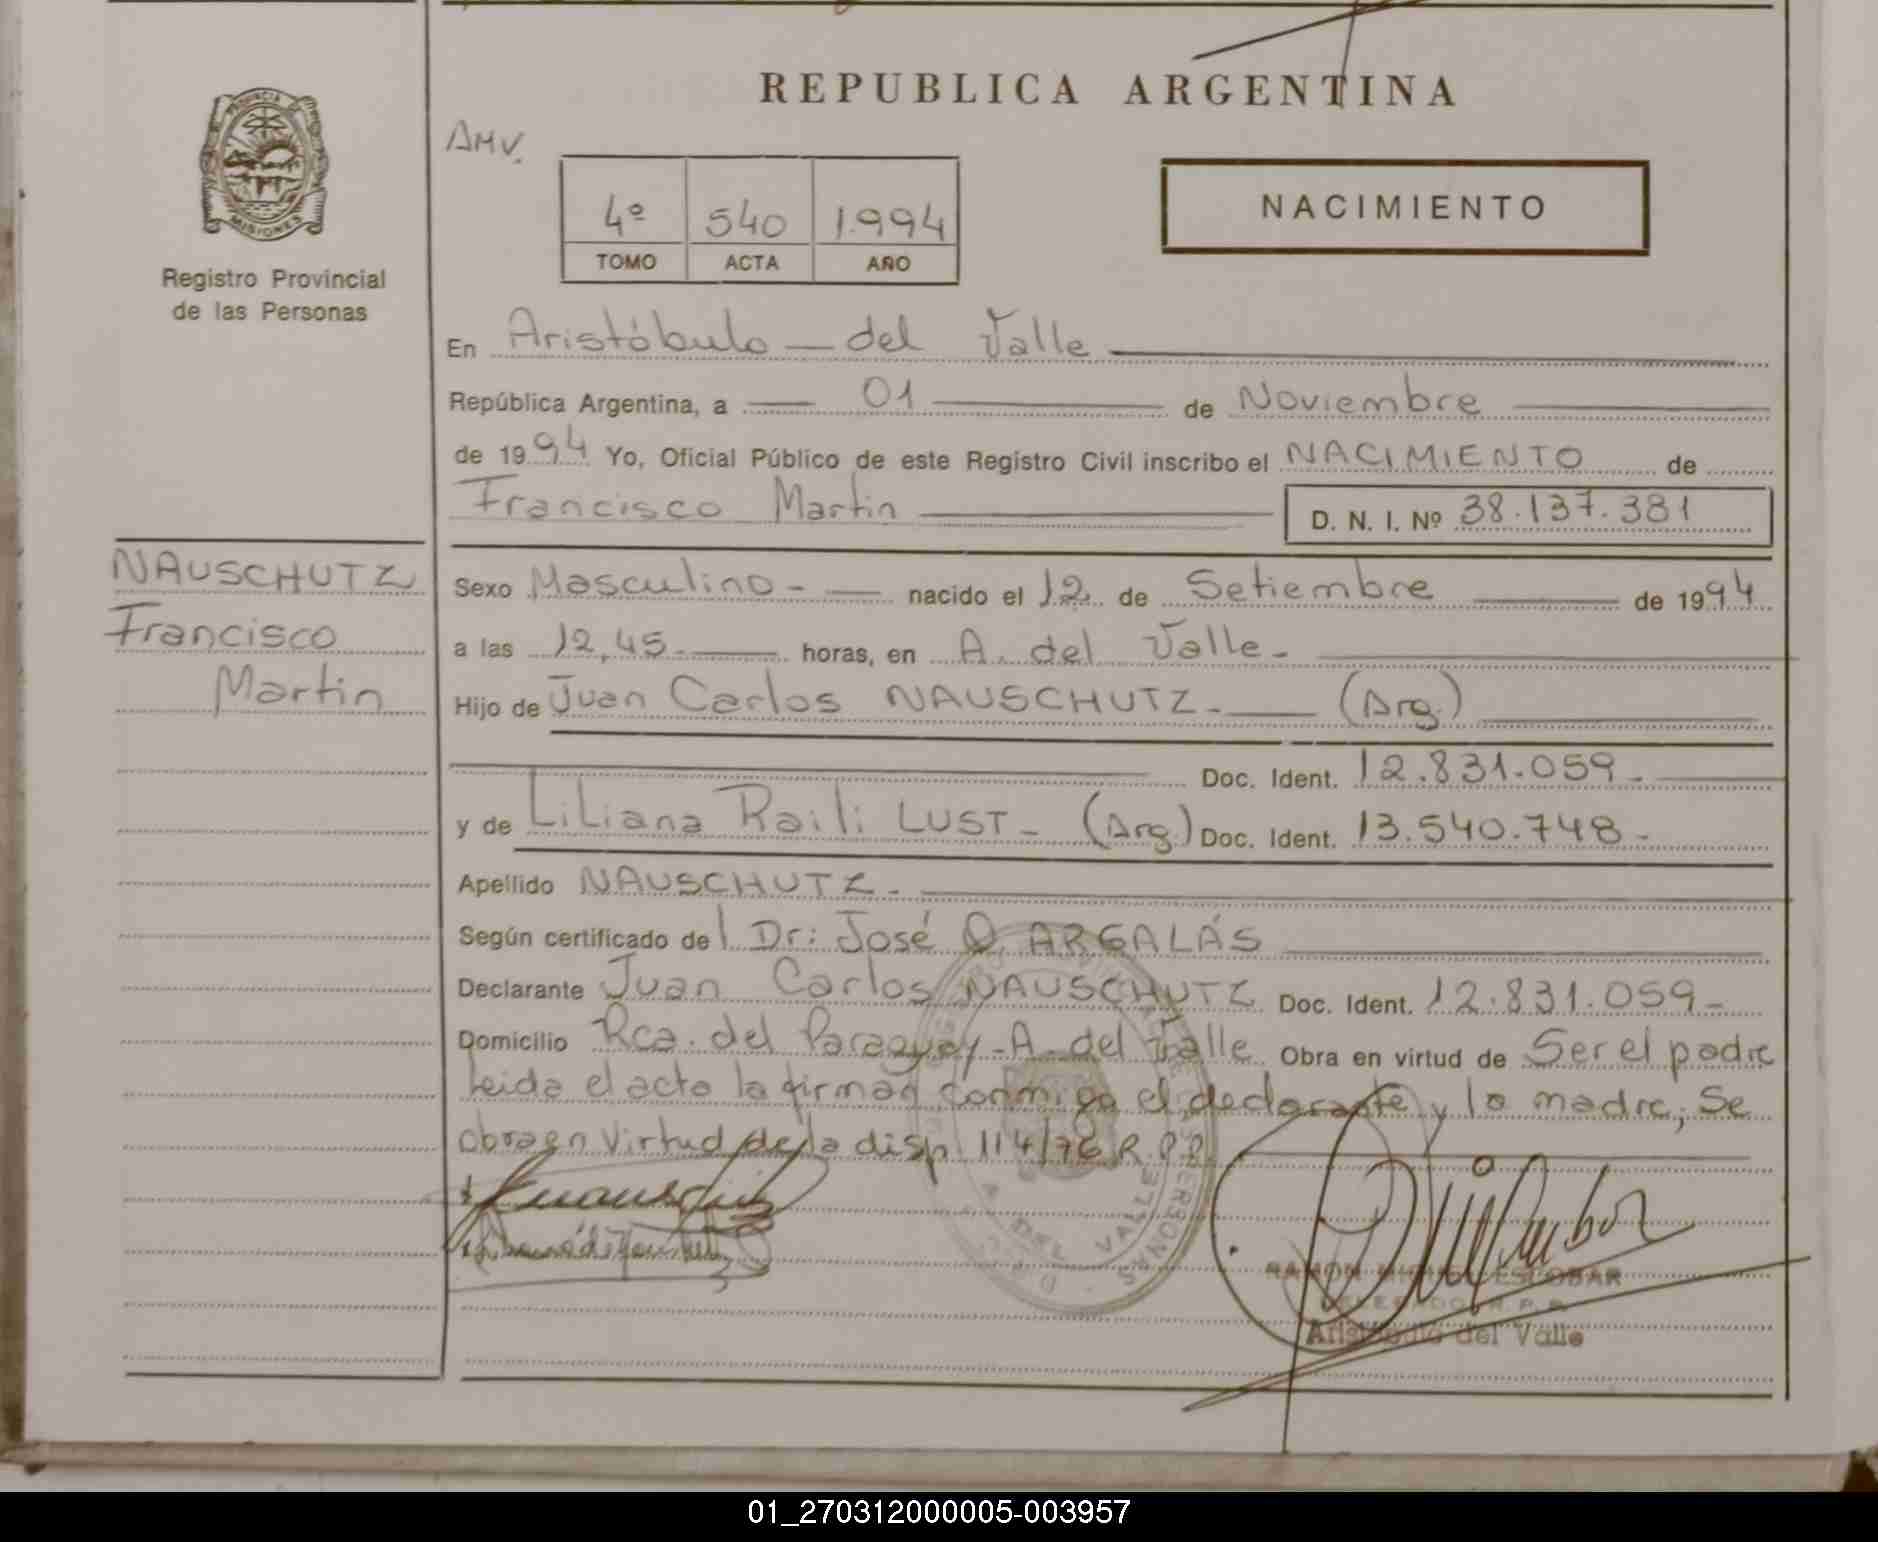 REPUBLICA ARGENTINA
PROVINCIA DE
MISIONES
Registro Provincial
de las Personas
AMV.
4º 540 1.994
TOMO ACTA AÑO
NACIMIENTO
En Aristóbulo del Valle
República Argentina, a 01 de Noviembre
de 1994 Yo, Oficial Público de este Registro Civil inscribo el NACIMIENTO de
Francisco Martin D. N. I. Nº 38.137.381
NAUSCHUTZ
Francisco
Martin
Sexo Masculino - nacido el 12 de Setiembre de 1994
a las 12,45 horas, en A. del Valle -
Hijo de Juan Carlos NAUSCHUTZ - (Arg.)
Doc. Ident. 12.831.059 -
y de Liliana Raili LUST - (Arg.) Doc. Ident. 13.540.748 -
Apellido NAUSCHUTZ -
Según certificado del Dr: José O. ARGALÁS
Declarante Juan Carlos NAUSCHUTZ Doc. Ident. 12.831.059 -
Domicilio Rca. del Paraguay - A. del Valle Obra en virtud de Ser el padre
Leida el acta la firman conmigo el declarante y la madre, Se
obra en virtud de la disp. 114/76 R.P.P.
A. DEL VALLE
RAMON MIGUEL ESCOBAR
DELEGADO R. P. P.
Aristóbulo del Valle
01_270312000005-003957